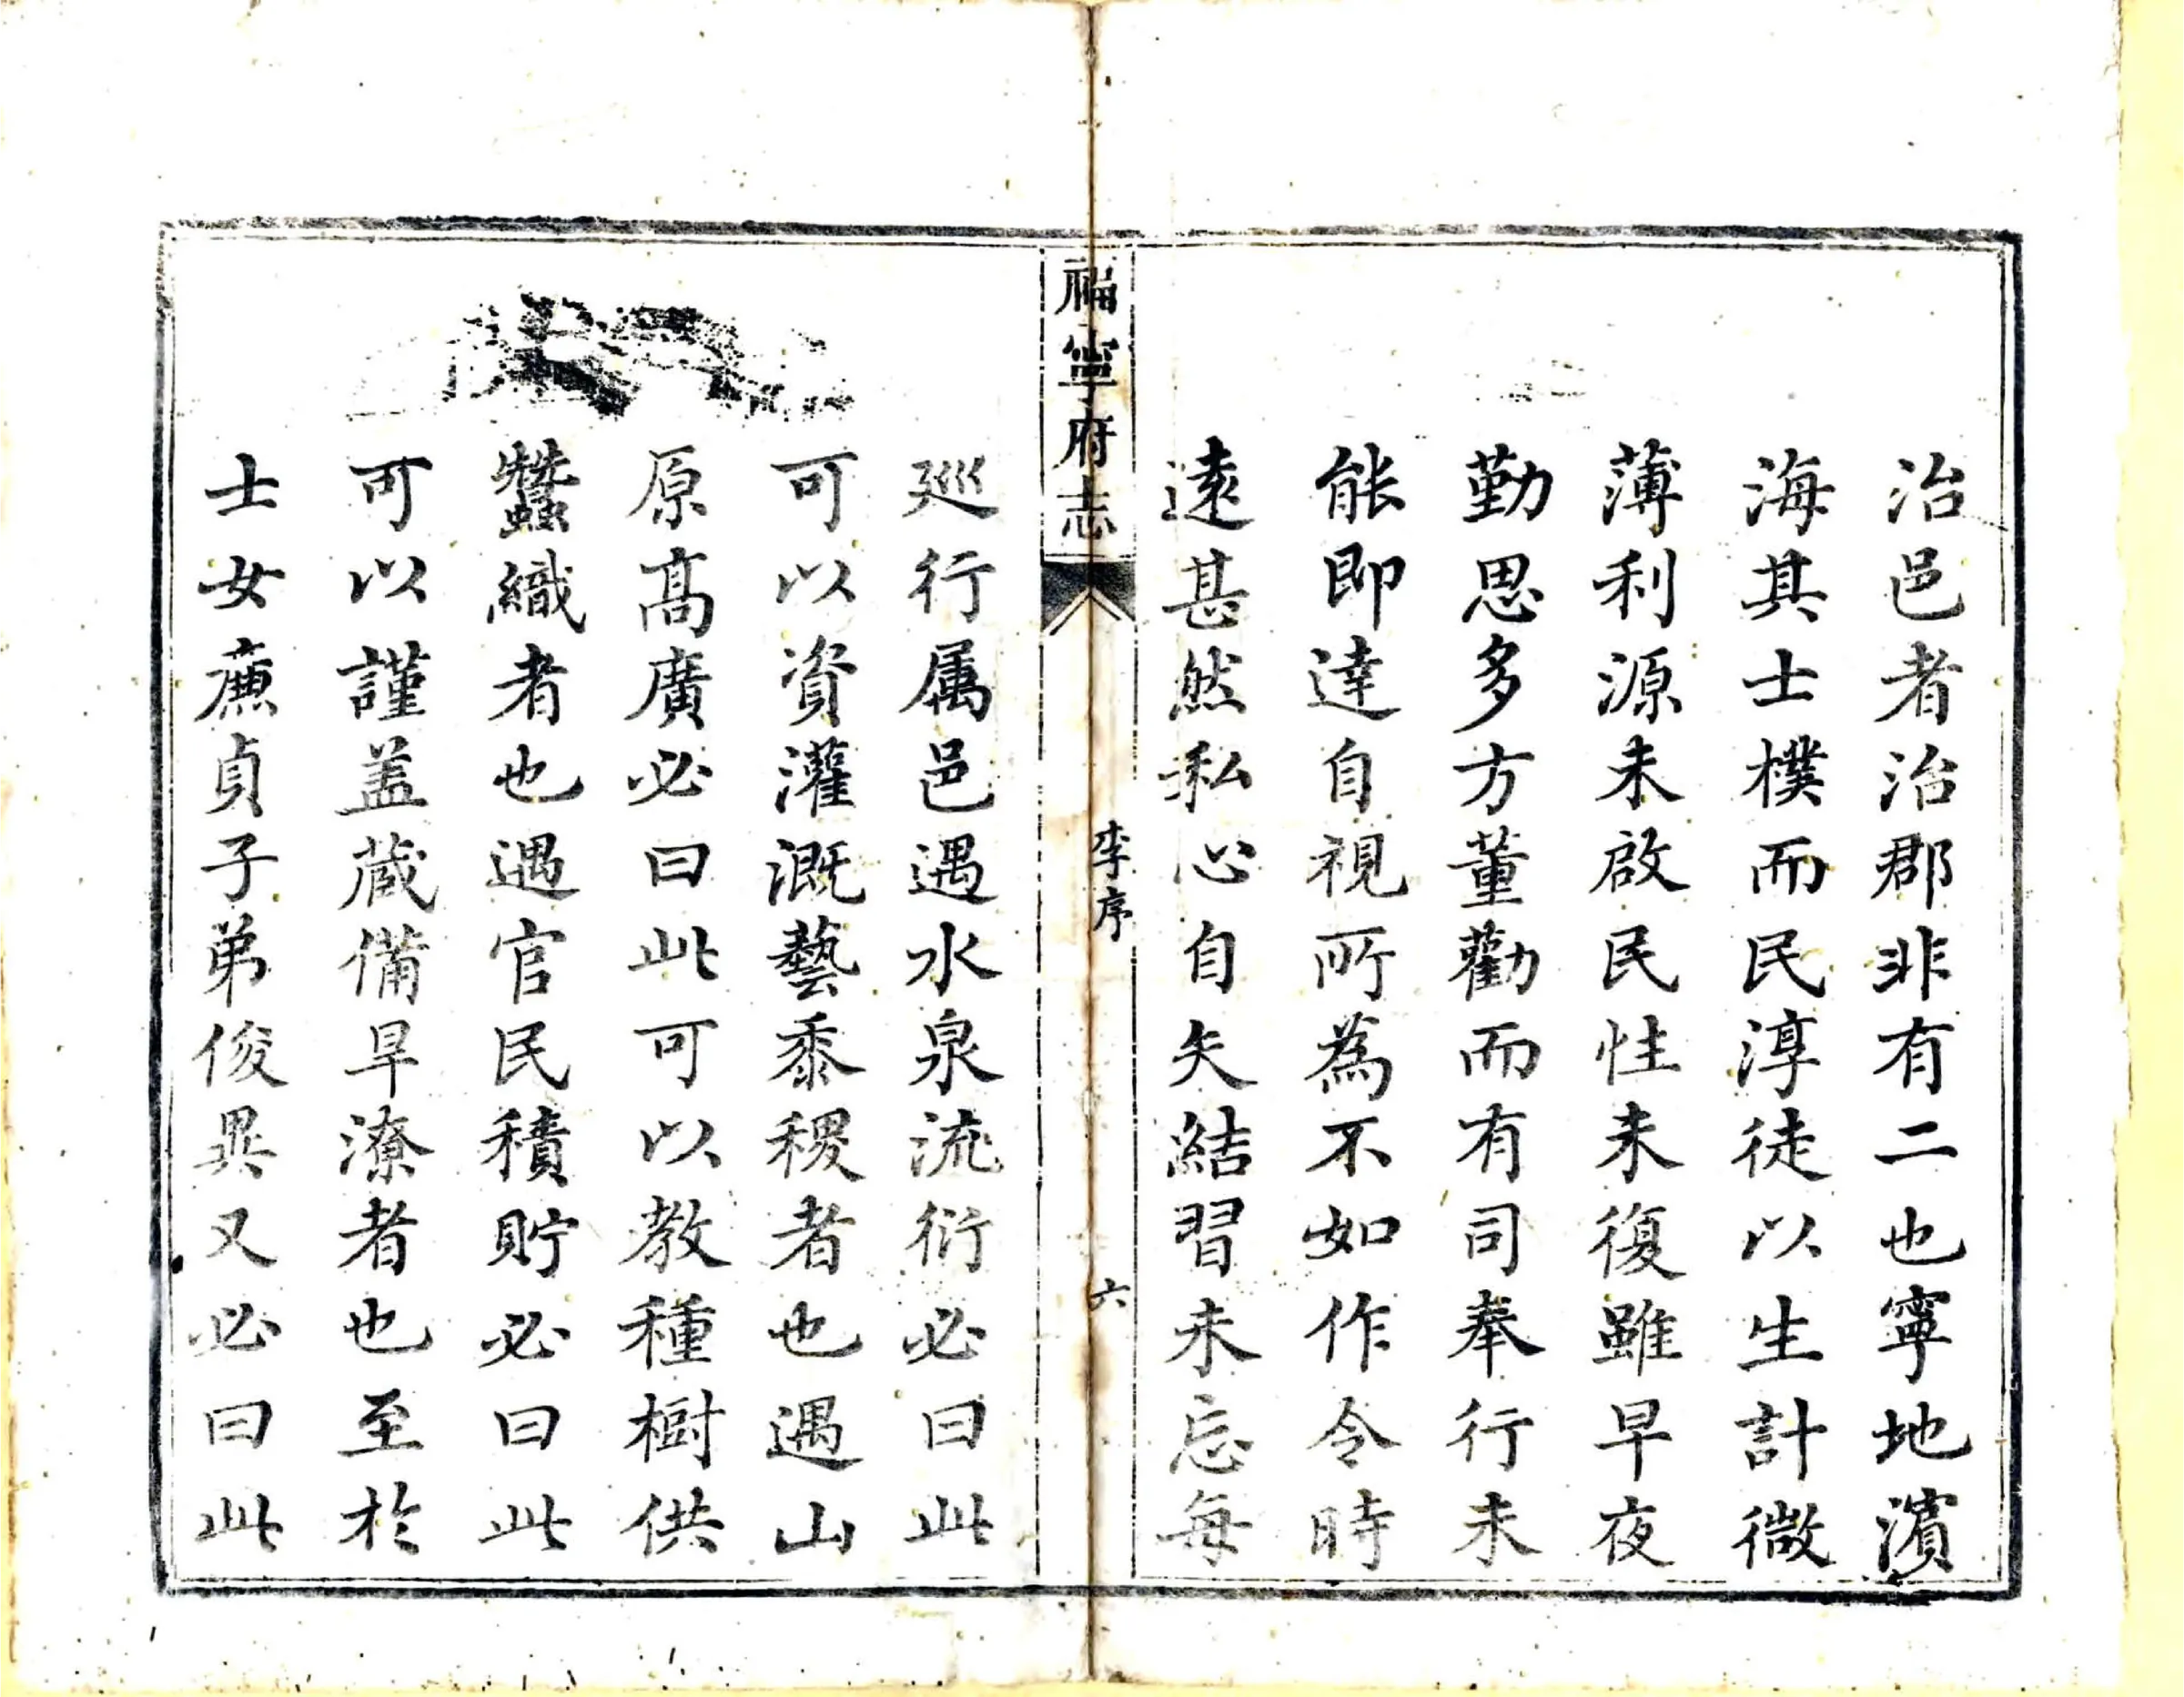 治邑者治郡非有二也寧地濱
海其士樸而民淳徒以生計微
薄利源未啟民性未復雖早夜
勤思多方董勸而有司奉行未
能即達自視所為不如作令時
遠甚然私心自矢結習未忘每
福寧府志
李序
六
巡行属邑遇水泉流衍必曰此
可以資灌溉藝黍稷者也遇山
原高廣必曰此可以教種樹供
蠶織者也遇官民積貯必曰此
可以謹盖蔵備旱潦者也至於
士女亷貞子弟俊異又必曰此